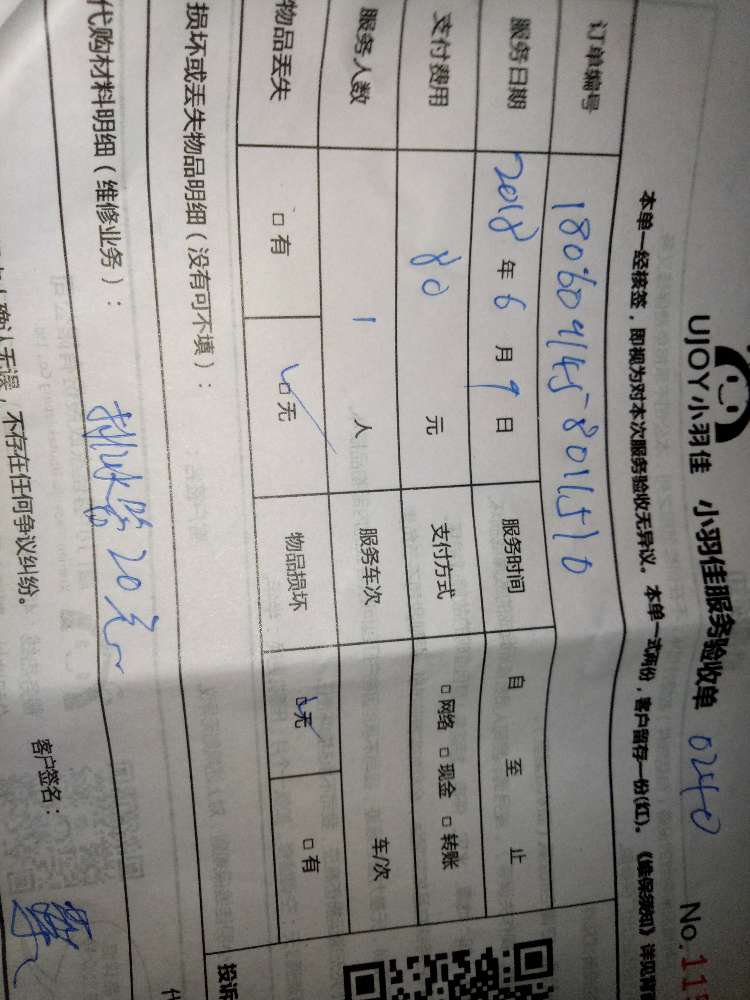 UJOY小羽佳 小羽佳服务验收单 0240 No.11
本单一经核签，即视为对本次服务验收无异议。本单一式两份，客户留存一份(红)。《维保须知》详见背
订单编号 180609145801510
服务日期 2018 年 6 月 9 日 服务时间 自 至 止
支付费用 80 元 支付方式 □网络 □现金 □转账
服务人数 1 人 服务车次 车/次
物品丢失 □有 ☑无 物品损坏 ☑无 □有
损坏或丢失物品明细（没有可不填）：
投诉
代购材料明细（维修业务）： 排水器20元
确认无误，不存在任何争议纠纷。 客户签名：